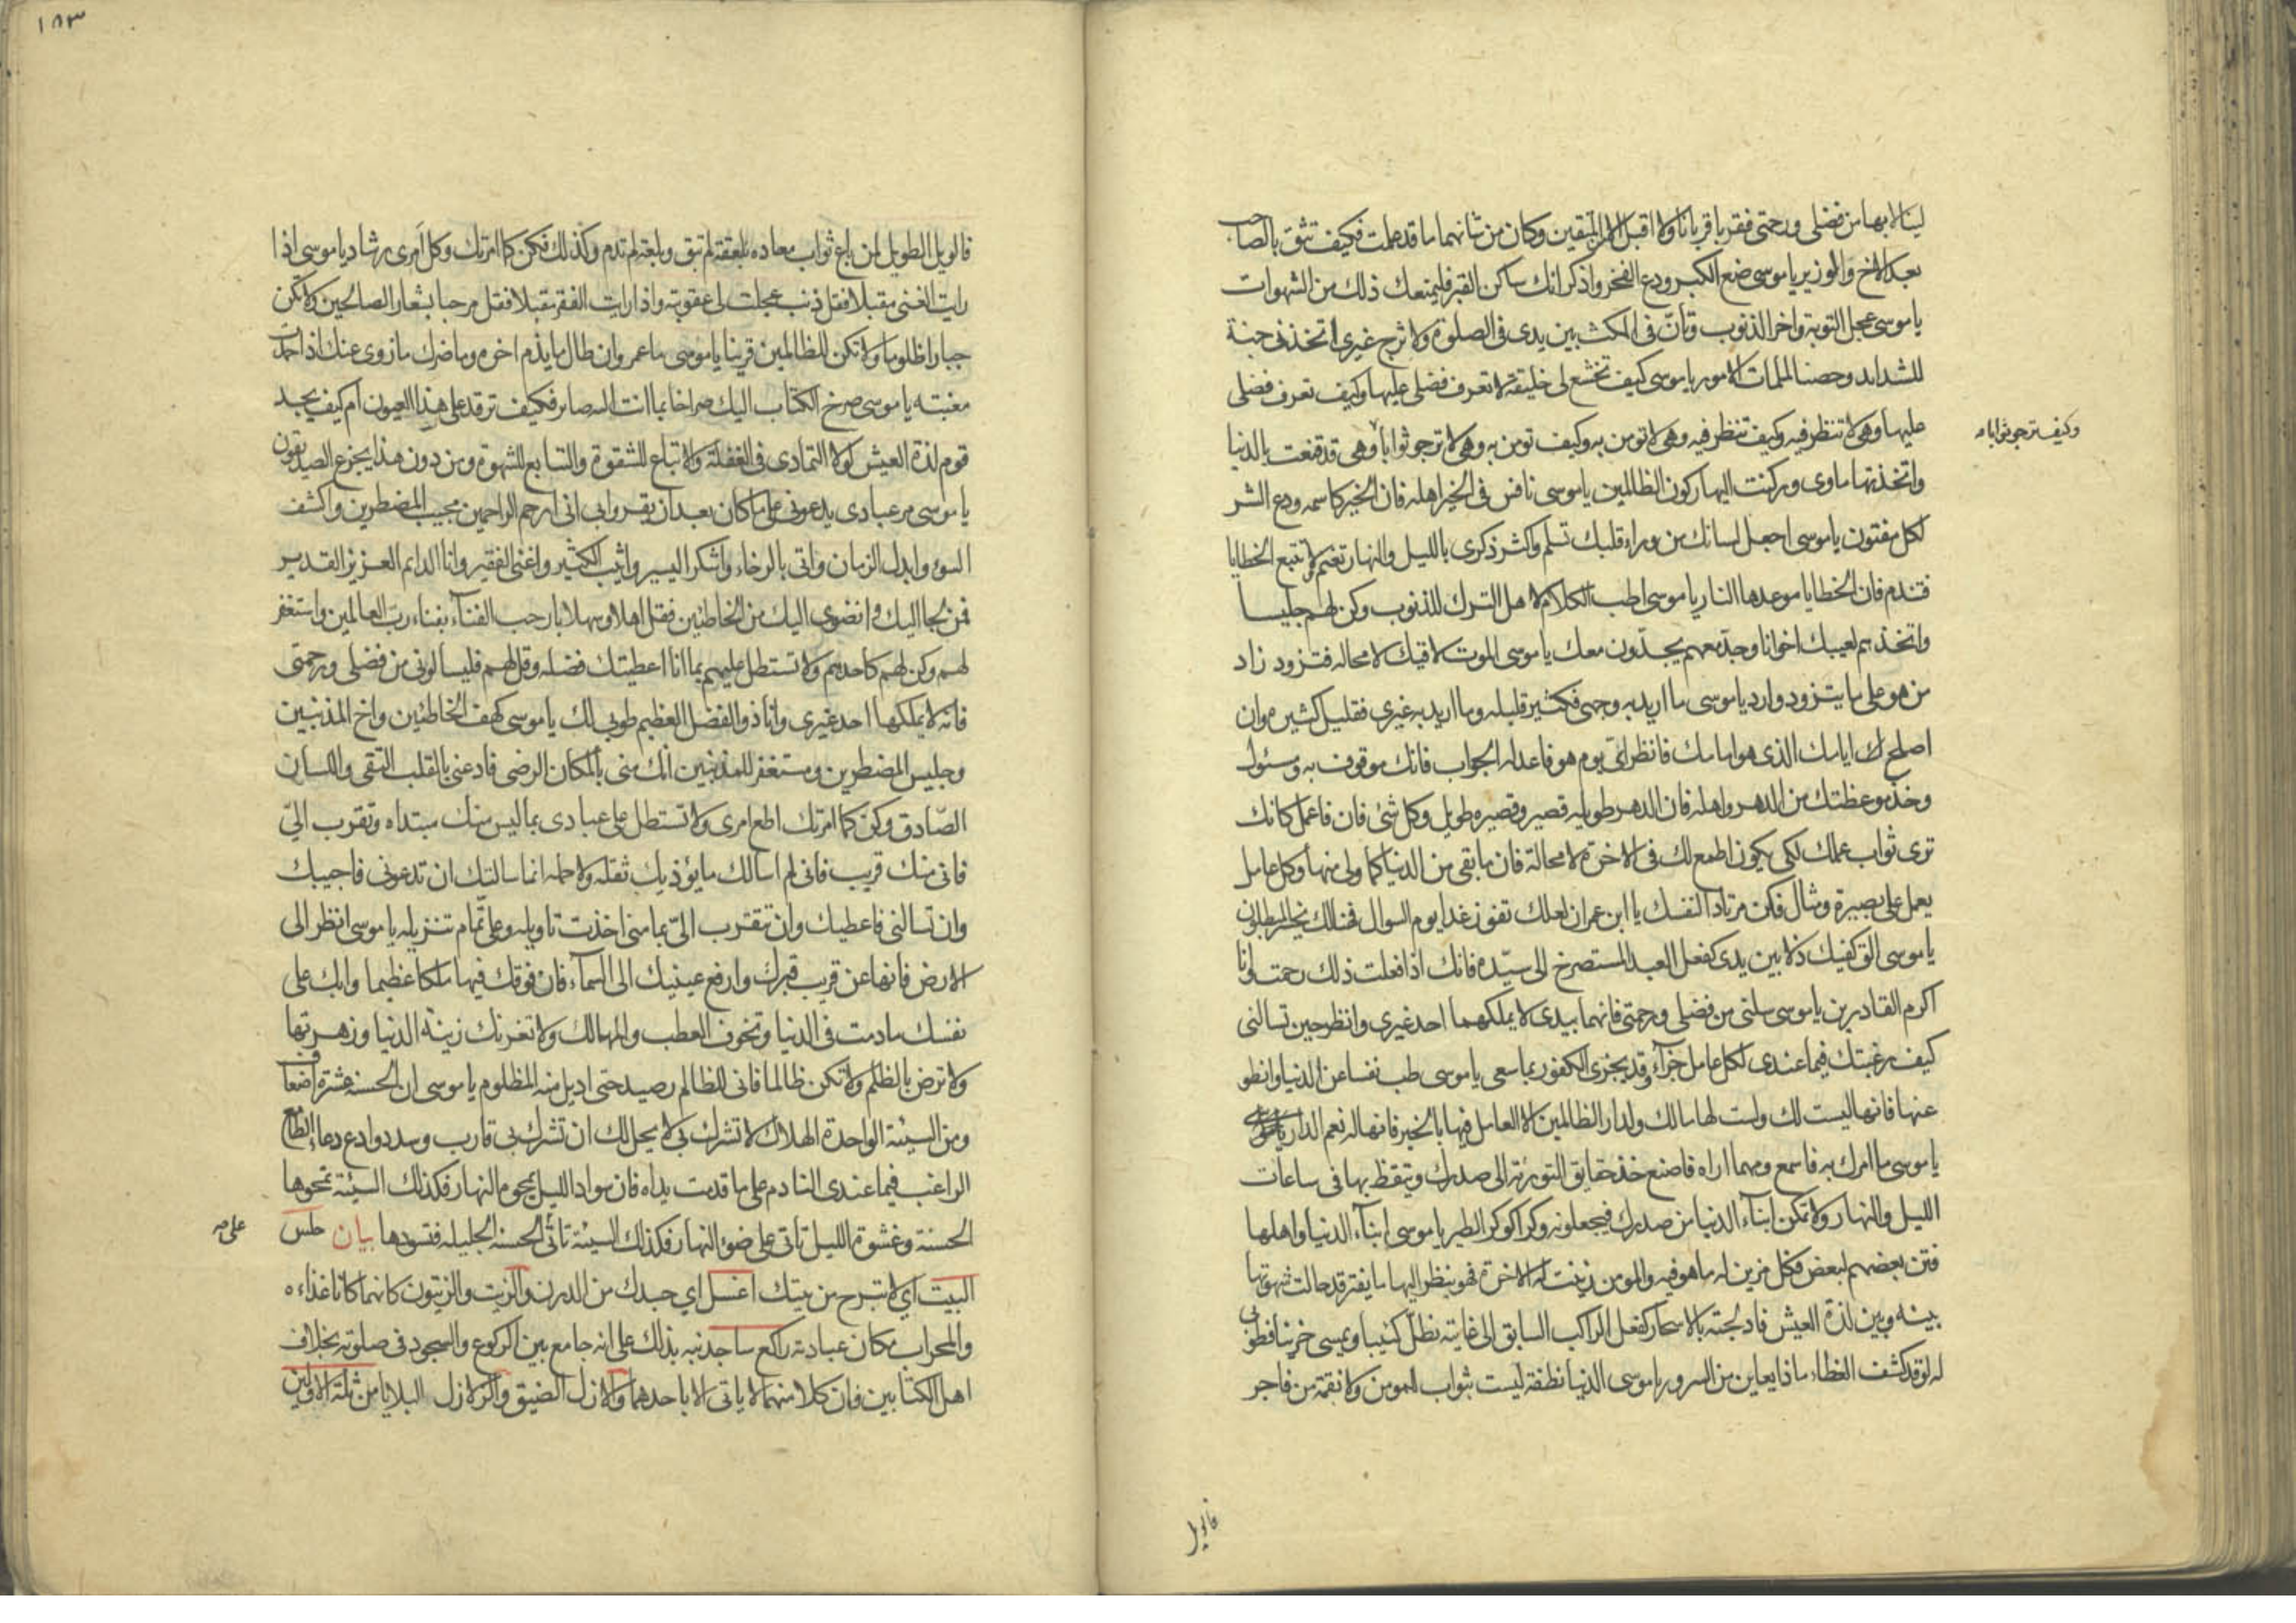 لينالا بها من فضلى ورحمتى فقربا قربانا ولا اقبل الا من المتقين وكان من شانهما ما قد علمت فكيف تثق بالصاحب
بعد الاخ والوزير ياموسى ضع الكبر ودع الفخر واذكر انك ساكن القبر فليمنعك ذلك من الشهوات
ياموسى عجل التوبة واخر الذنوب وتأنّ فى المكث بين يدى فى الصلوة ولا ترج غيرى اتخذنى جنة
للشدايد وحصنا لملمات الامور ياموسى كيف تخشع لى خليقة لا تعرف فضلى عليها وكيف تعرف فضلى
عليها وهى لا تنظر فيه وكيف تنظر فيه وهى لا تومن به وكيف تومن به وهى لا ترجو ثوابا وهى قد قنعت بالدنيا
وكيف ترجو ثوابا
واتخذتها ماوى وركنت اليها ركون الظالمين ياموسى نافس فى الخير اهله فان الخير كاسمه ودع الشر
لكل مفتون ياموسى اجعل لسانك من وراء قلبك تسلم واكثر ذكرى بالليل والنهار تغنم ولا تتبع الخطايا
فتندم فان الخطايا موعدها النار ياموسى اطب الكلام لاهل الترك للذنوب وكن لهم جليسا
واتخذهم لغيبك اخوانا وجد معهم يجدّون معك ياموسى الموت لاقيك لا محاله فتزود زاد
من هو على ما يتزود وارد ياموسى ما اريد به وجهى فكثير قليله وما اريد به غيرى فقليل كثيره وان
اصلح لك ايامك الذى هو امامك فانظر اىّ يوم هو فاعد له الجواب فانك موقوف به ومسئول
وخذ موعظتك من الدهر واهله فان الدهر طويله قصير وقصيره طويل وكل شئ فان فاعمل كانك
ترى ثواب عملك لكى يكون اطمع لك فى الاخرة لا محالة فان ما بقى من الدنيا كما ولى منها وكل عامل
يعمل على بصيرة ومثال فكن مرتادا لنفسك يا ابن عمران لعلك تفوز غدا يوم السوال فهنالك يخسر المبطلون
ياموسى الق كفيك ذلا بين يدى كفعل العبد المستصرخ الى سيّده فانك اذا فعلت ذلك رحمت وانا
اكرم القادرين ياموسى سلنى من فضلى ورحمتى فانهما بيدى لا يملكهما احد غيرى وانظر حين تسالنى
كيف رغبتك فيما عندى لكل عامل جزآء وقد يجزى الكفور بما سعى ياموسى طب نفسا عن الدنيا وانطو
عنها فانها ليست لك ولست لها مالك ولدار الظالمين الا العامل فيها بالخير فانها له نعم الدار
ياموسى ما امرك به فاسمع ومهما اراه فاصنع خذ حقايق التورية الى صدرك وتيقظ بها فى ساعات
الليل والنهار ولا تمكن ابناء الدنيا من صدرك فيجعلونه وكرا كوكر الطير ياموسى ابنآء الدنيا واهلها
فتن بعضهم لبعض فكل مزين له ما هو فيه والمومن زينت له الاخرة فهو ينظر اليها ما يفتر قد حالت شهوتها
بينه وبين لذة العيش فادلجته بالاسحار كفعل الراكب السابق الى غايته يظلّ كئيبا ويمسى حزينا فطوبى
له لو قد كشف الغطاء ماذا يعاين من السرور ياموسى الدنيا نطفة ليست بثواب للمومن ولا نقمة من فاجر
فالويل
١٨٣
فالويل الطويل لمن باع ثواب معاده بلعقة لم تبق وبلعة لم تدم وكذلك فكن كما امرتك وكل أمرى رشاد ياموسى اذا
رايت الغنى مقبلا فقل ذنب عجلت لى عقوبته واذا رايت الفقر مقبلا فقل مرحبا بشعار الصالحين ولا تكن
جبارا ظلوما ولا تكن للظالمين قرينا ياموسى ما عمر وان طال ما يذم اخره وما ضرك ما زوى عنك اذا حمدت
مغبته ياموسى صرخ الكتاب اليك صراخا بما انت اليه صاير فكيف ترقد على هذا العيون ام كيف يجد
قوم لذة العيش لولا التمادى فى الغفلة والاتباع للشقوة والتتابع للشهوة ومن دون هذا يجزع الصديقون
ياموسى مر عبادى يدعونى على ما كان بعد ان يقروا بى انى ارحم الراحمين مجيب المضطرين واكشف
السوء وابدل الزمان واتى بالرخاء واشكر اليسير واثيب الكثير واغنى الفقير وانا الدائم العزيز القدير
فمن لجا اليك وانضوى اليك من الخاطئين فقل اهلا وسهلا يا رحب الفنآء بفناء ربّ العالمين واستغفر
لهم وكن لهم كاحدهم ولا تستطل عليهم بما انا اعطيتك فضله وقل لهم فليسالونى من فضلى ورحمتى
فانه لا يملكها احد غيرى وانا ذو الفضل العظيم طوبى لك ياموسى كهف الخاطئين واخ المذنبين
وجليس المضطرين ومستغفر للمذنبين انك منى بالمكان الرضى فادعنى بالقلب النقى واللسان
الصّادق وكن كما امرتك اطع امرى ولا تستطل على عبادى بما ليس منك مبتداه وتقرب الىّ
فانى منك قريب فانى لم اسالك ما يؤذيك ثقله ولا حمله انما سالتك ان تدعونى فاجيبك
وان تسالنى فاعطيك وان تتقرب الىّ بما منى اخذت تاويله وعلىّ تمام تنزيله ياموسى انظر الى
الارض فانها عن قريب قبرك وارفع عينيك الى السمآء فان فوقك فيها ملكا عظيما وابك على
نفسك ما دمت فى الدنيا وتخوف العطب والمهالك ولا تغرنك زينة الدنيا وزهرتها
ولا ترض بالظلم ولا تكن ظالما فانى للظالم رصيد حتى اديل منه المظلوم ياموسى ان الحسنة عشرة اضعاف
ومن السيئة الواحدة الهلاك لا تشرك بى لا يحل لك ان تشرك بى قارب وسدد وادع دعاء الطامع
الراغب فيما عندى النادم على ما قدمت يداه فان سواد الليل يمحوه النهار فكذلك السيئة تمحوها
الحسنة وعشوة الليل تاتى على ضوء النهار فكذلك السيئة تاتى الحسنة الجليله فتسودها بيان حلس
على
البيت اي لا تبرح من بيتك اغسل اي جسدك من الدرن والزيت والزيتون كانهما كانا غذاءه
والمحراب مكان عبادته راكع ساجد نبه بذلك على انه جامع بين الركوع والسجود فى صلوته بخلاف
اهل الكتابين فان كلا منهما لا ياتى الا باحدهما والازل الضيق والزلازل البلايا من ثلة الاولين